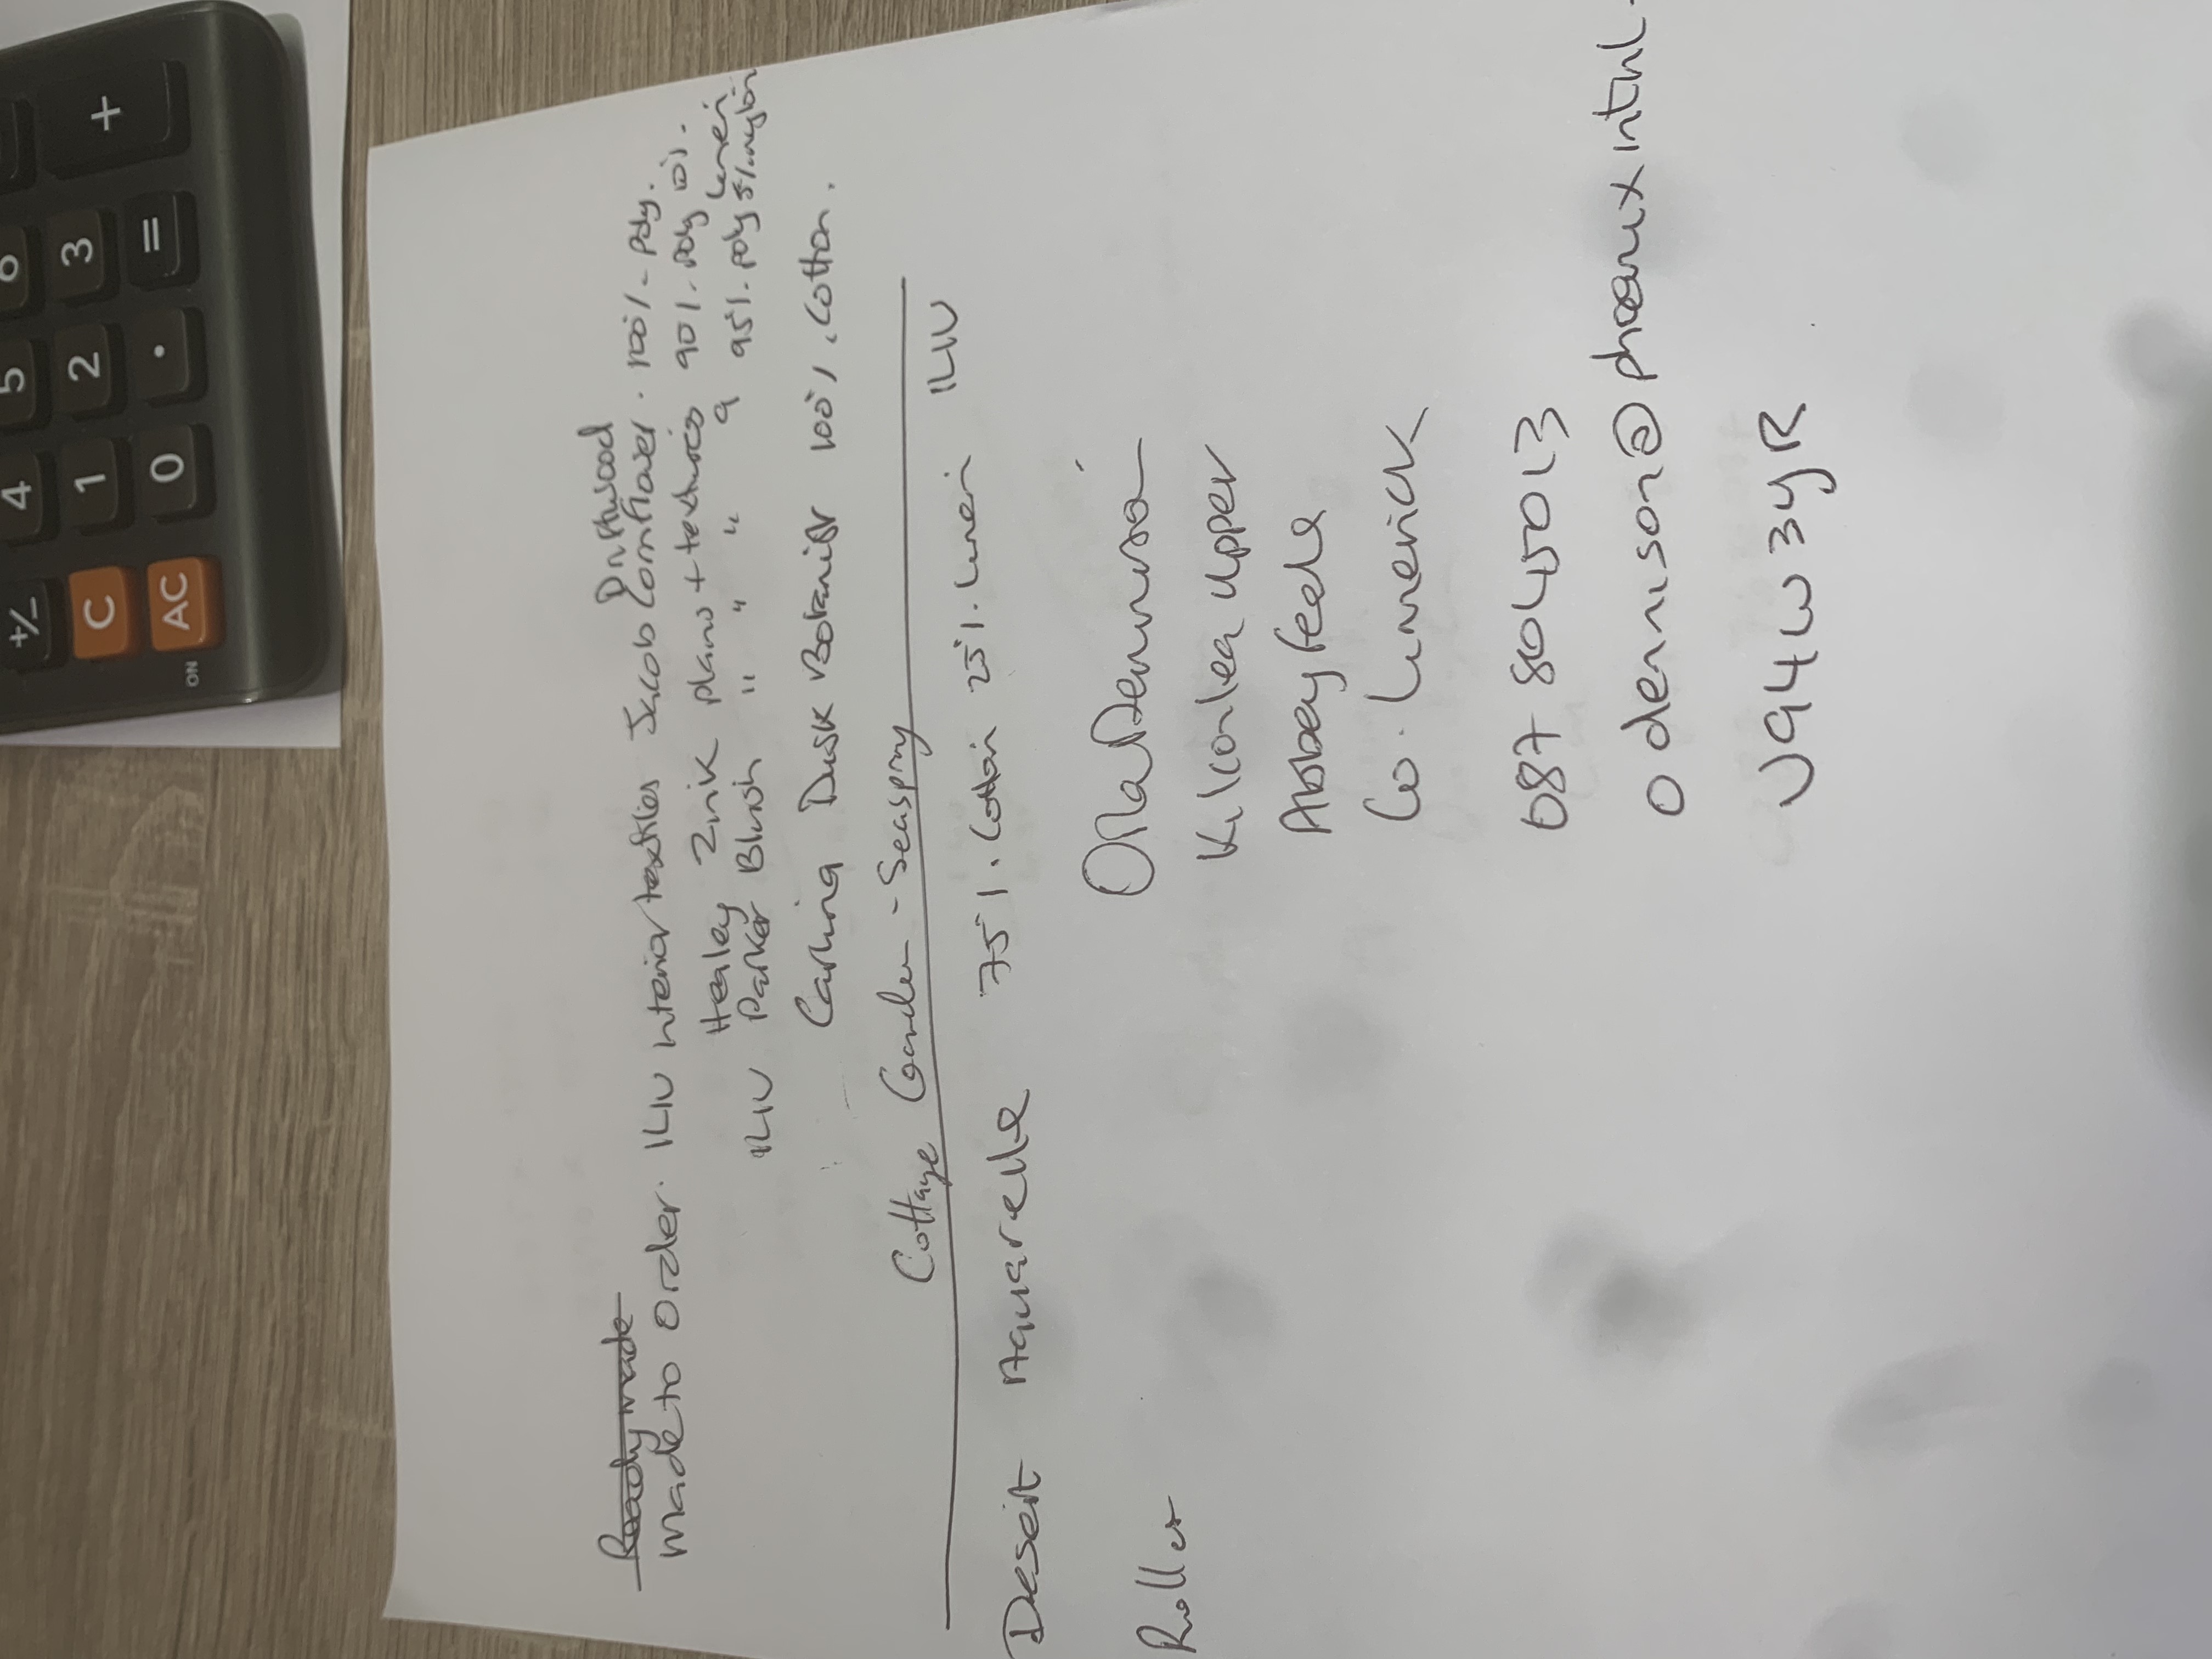 Driftwood
Ready made
made to Order. ILIV Interior textiles Jacob Cornflower. 100%. poly.
Healey Zink plains + textures 90%. poly 10%. Linen
ILIV Parker Blush " " " 9 95%. poly 5%. nylon
Carlina Dusk Botanist 100%. Cotton.
Cottage Garden - Seaspray
Desert Aquarelle 75%. Cotton 25%. Linen ILIV
Roller
Orla Dennison
Kilconlea Upper
Abbeyfeale
Co. Limerick
087 8045013
odennison@phoenixintnl.
V94W3YR
+/- 4 5 6
C 1 2 3 +
ON AC 0 . =